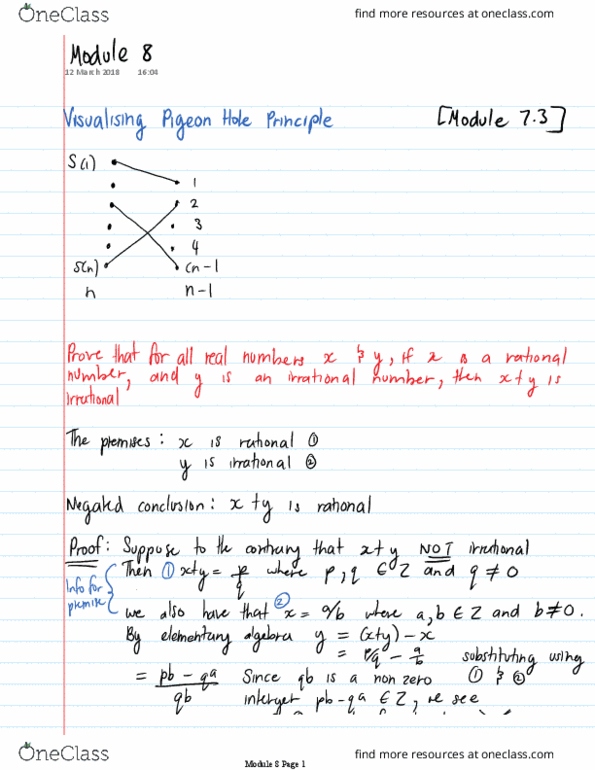 OneClass
find more resources at oneclass.com
Module 8
12 March 2018 16:04
Visualising Pigeon Hole Principle [Module 7.3]
S(1)
1
2
3
4
S(n) (n-1
n n-1
Prove that for all real numbers x & y, if x is a rational
number, and y is an irrational number, then x+y is
irrational
The premises: x is rational ①
y is irrational ②
Negated conclusion: x+y is rational
Proof: Suppose to the contrary that x+y NOT irrational
Info for premise
Then ① x+y = p/q where p, q ∈ Z and q ≠ 0
we also have that ② x = a/b where a, b ∈ Z and b≠0.
By elementary algebra y = (x+y) - x
= p/q - a/b substituting using
① & ②
= pb - qa / qb Since qb is a non zero
interger pb-qa ∈ Z, we see
OneClass
Module 8 Page 1
find more resources at oneclass.com